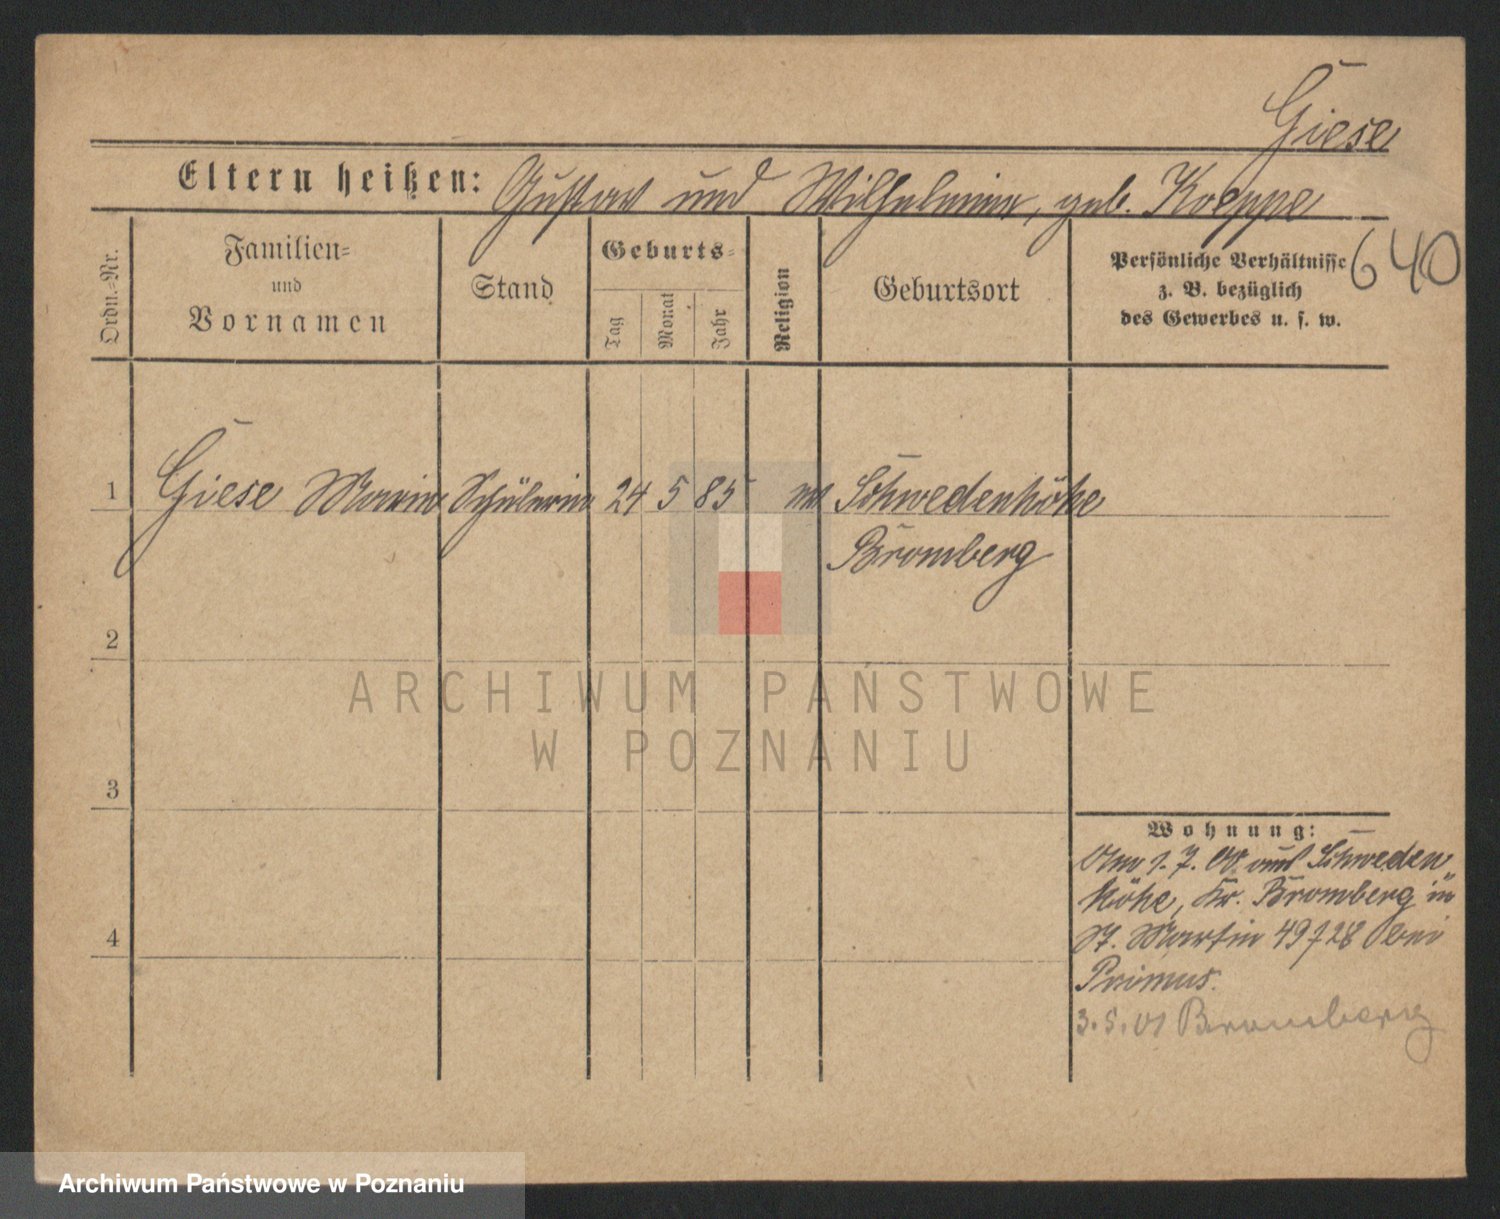 Giese
Eltern heißen: Gustav und Wilhelmine, geb. Koeppe
640
Ordn.-Nr.
Familien-
und
Vornamen
Stand
Geburts-
Tag
Monat
Jahr
Religion
Geburtsort
Persönliche Verhältnisse
z. B. bezüglich
des Gewerbes u. s. w.
1 Giese Marie Schülerin 24 5 85 ev Schwedenhöhe
Bromberg
2
ARCHIWUM PAŃSTWOWE
W POZNANIU
3
Wohnung:
Am 1. 7. 00 aus Schweden
höhe, Kr. Bromberg in
St. Martin 49/28 bei
Primus.
3.5.01 Bromberg
4
Archiwum Państwowe w Poznaniu